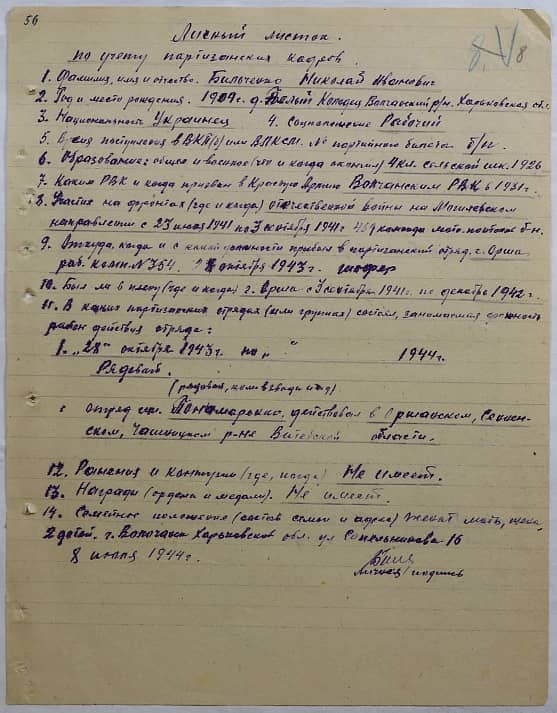 56
8
Личный листок.
по учету партизанских кадров.
1. Фамилия, имя и отчество. Бильченко Николай Иванович
2. Год и место рождения. 1909г. д. Белый Колодец Волчанский р/н. Харьковская обл.
3. Национальность Украинец 4. Социальное Рабочий
5. Время поступления в ВКП(б) или ВЛКСМ. № партийного билета б/п.
6. Образование: общее и военное (что и когда окончил) 4 кл. сельской шк. 1926
7. Каким РВК и когда призван в Красную Армию Волчанским РВК в 1931г.
8. Участие на фронтах (где и когда) отечественной войны на Могилевском
направлении с 23 июля 1941 по 3 сентября 1941г
9. Откуда, когда и с какой должности прибыл в партизанский отряд. г. Орша
раб. № 354. октября 1943г. шофер
10. Был ли в плену (где и когда) г. Орша с 3 сентября 1941г. по декабрь 1942г.
11. В каких партизанских отрядах (или группах) состоял, занимаемая должность
район действия отряда:
1. „28" октября 1943г. по „ " 1944г.
Рядовой.
(рядовой, ком. взвода и др)
отряд им. Понамаренко, действовал в Оршанском, Сеннен-
ском, Чашницком р-не Витебской области.
12. Ранения и контузии (где, когда) Не имеет.
13. Награды (ордена и медали). Не имеет.
14. Семейное положение (состав семьи и адрес) женат мать, жена,
2 детей. г. Волчанск Харьковской обл. ул 16
8 июля 1944г.
личная подпись